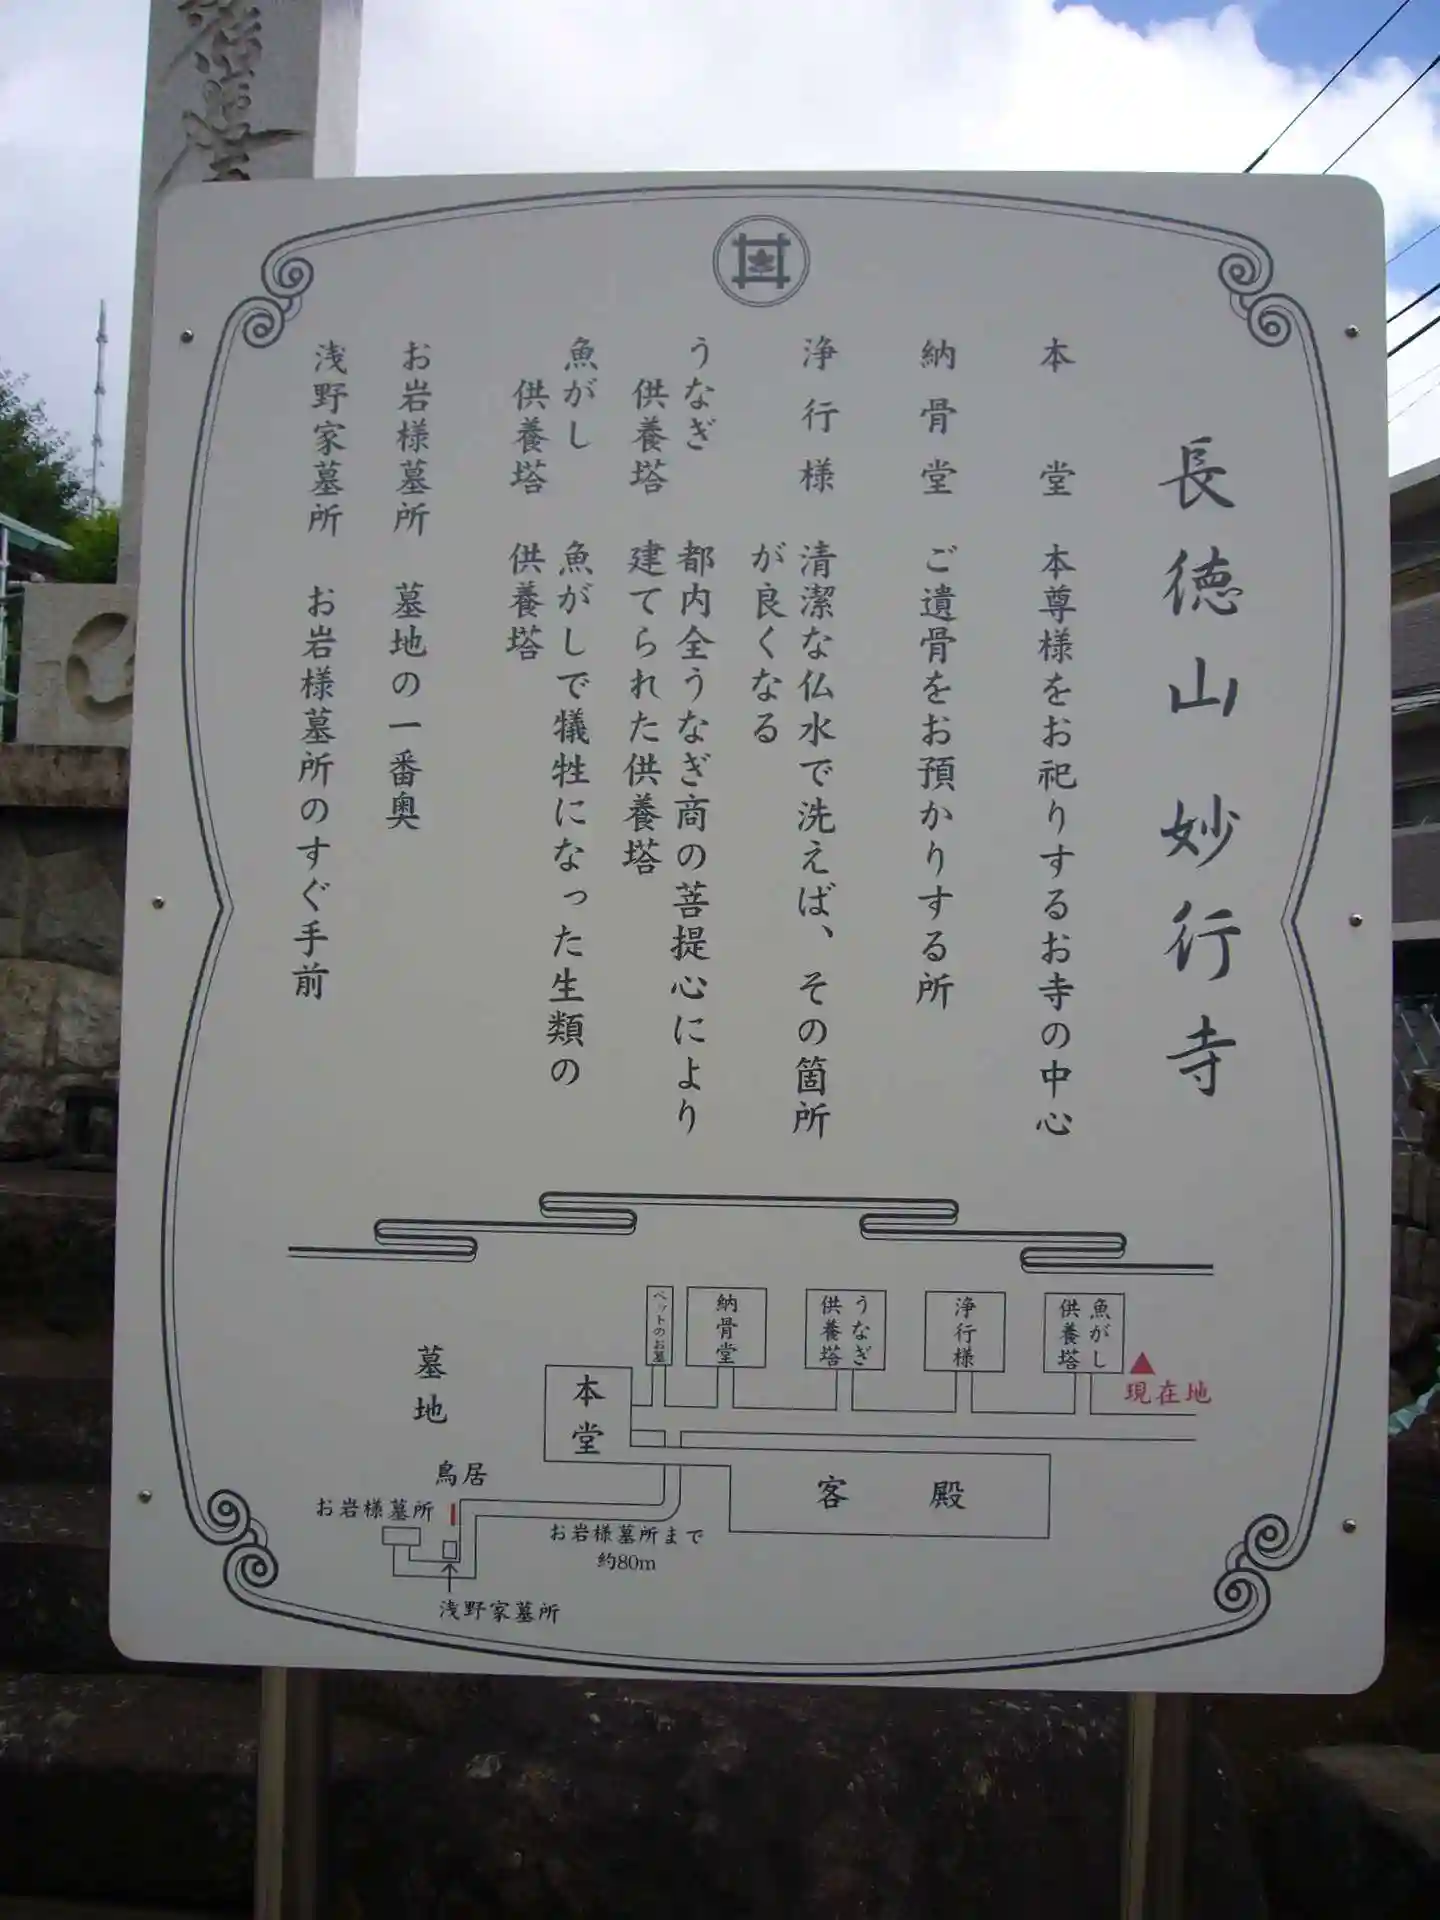 長徳山 妙行寺
本堂 本尊様をお祀りするお寺の中心
納骨堂 ご遺骨をお預かりする所
浄行様 清潔な仏水で洗えば、その箇所
が良くなる
うなぎ
供養塔
都内全うなぎ商の菩提心により
建てられた供養塔
魚がし
供養塔
魚がしで犠牲になった生類の
供養塔
お岩様墓所 墓地の一番奥
浅野家墓所 お岩様墓所のすぐ手前
魚がし
供養塔
現在地
浄行様
うなぎ
供養塔
納骨堂
ペットのお墓
本堂
客殿
墓地
鳥居
お岩様墓所
お岩様墓所まで
約80m
浅野家墓所